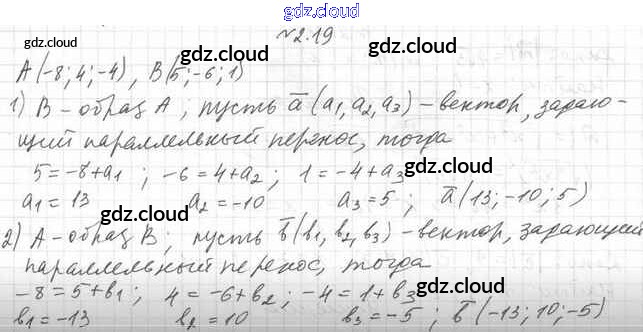 gdz.cloud
№2.19
gdz.cloud gdz.cloud gdz.cloud
A(-8; 4; -4), B(5; -6; 1)
1) B - образ A; пусть a̅(a₁, a₂, a₃) - вектор, задаю-
щий параллельный перенос, тогда
gdz.cloud
5 = -8 + a₁; -6 = 4 + a₂; 1 = -4 + a₃
gdz.cloud
a₁ = 13 a₂ = -10 a₃ = 5; a̅(13; -10; 5)
gdz.cloud gdz.cloud
2) A - образ B; пусть b̅(b₁, b₂, b₃) - вектор, задающий
параллельный перенос, тогда
gdz.cloud
-8 = 5 + b₁; 4 = -6 + b₂; -4 = 1 + b₃
gdz.cloud gdz.cloud
b₁ = -13 b₂ = 10 b₃ = -5; b̅(-13; 10; -5)
gdz.cloud